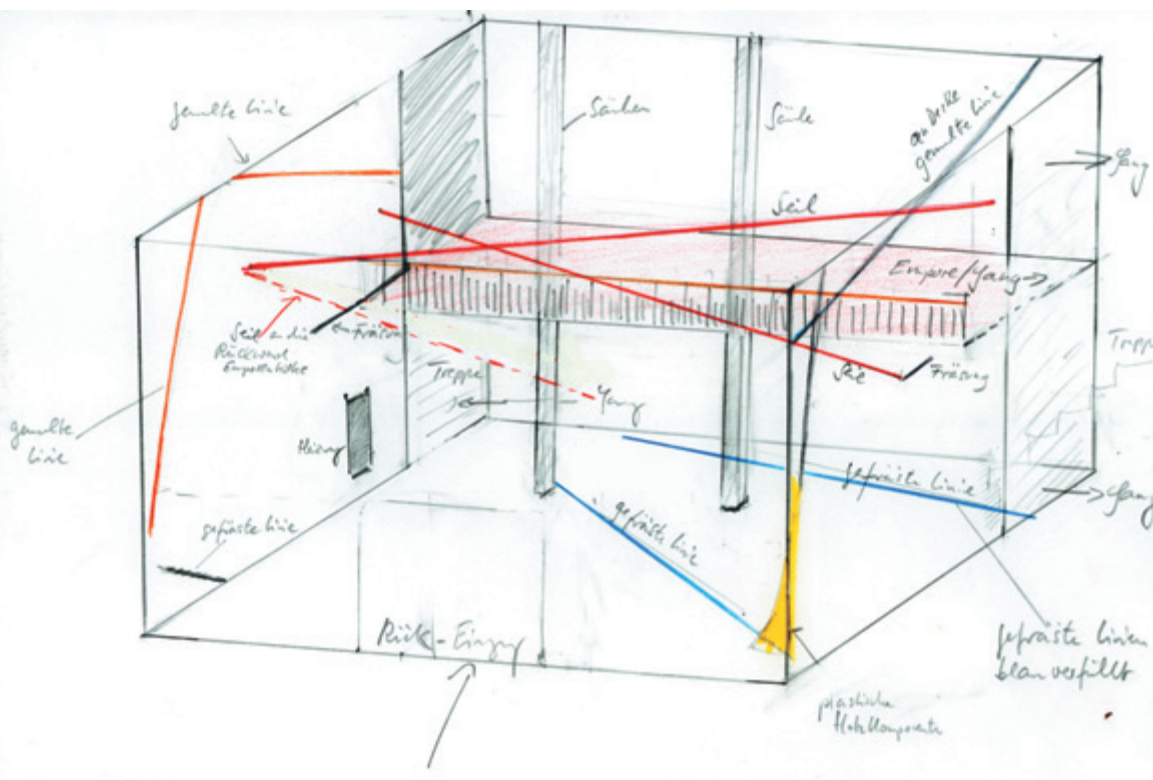 gemalte Linie
Säulen
Säule
an Decke
gemalte Linie
Seil
Empore/
Seil an die
Rückwand
Emporenhöhe
Fräsung
Treppe
Fräsung
gemalte
Linie
Heizung
gefräste Linie
gefräste Linie
gefräste Linie
gefräste Linien
blau verfüllt
plastische
Holzkomponente